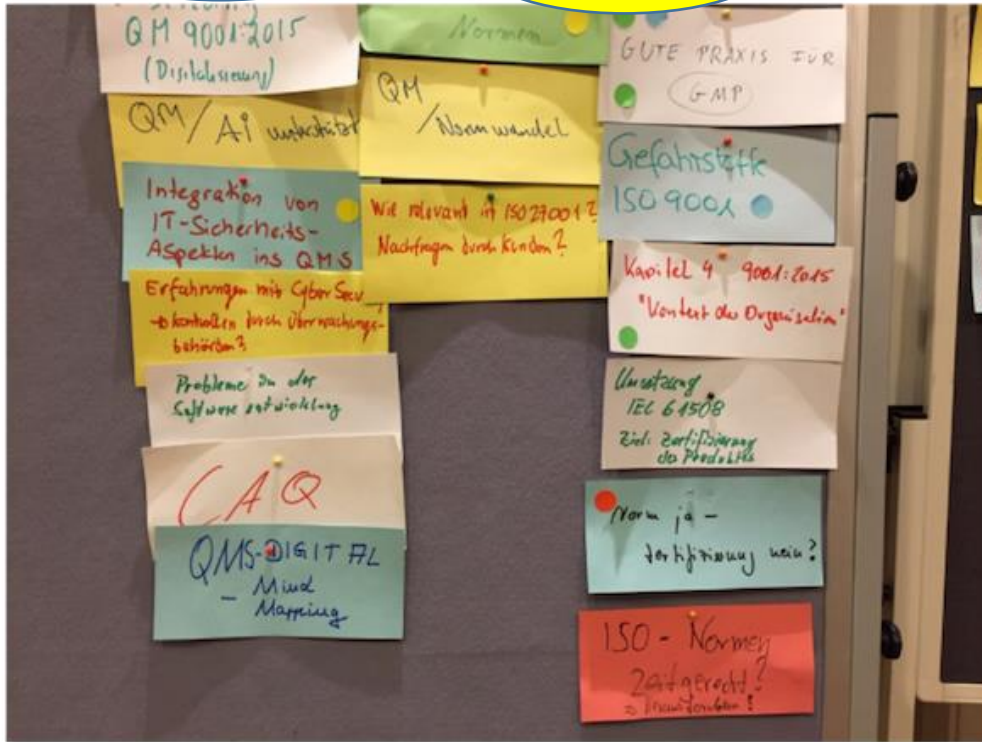 QM 9001:2015
(Digitalisierung)
QM / AI unterstützt
Integration von
IT-Sicherheits-
Aspekten ins QMS
Erfahrungen mit Cyber Secu
durch Überwachungs-
behörden?
Probleme in der
Software entwicklung
CAQ
QMS-DIGITAL
- Mind
Mapping
Normen
QM
/ Normwandel
Wie relevant ist ISO 27001?
Nachfragen durch Kunden?
GUTE PRAXIS FÜR
GMP
Gefahrstoffe
ISO 9001
Kapitel 4 9001:2015
"Kontext der Organisation"
Umsetzung
IEC 61508
Ziel: Zertifizierung
des Produktes
Norm ja -
Zertifizierung nein?
ISO - Normen
Zeitgerecht?